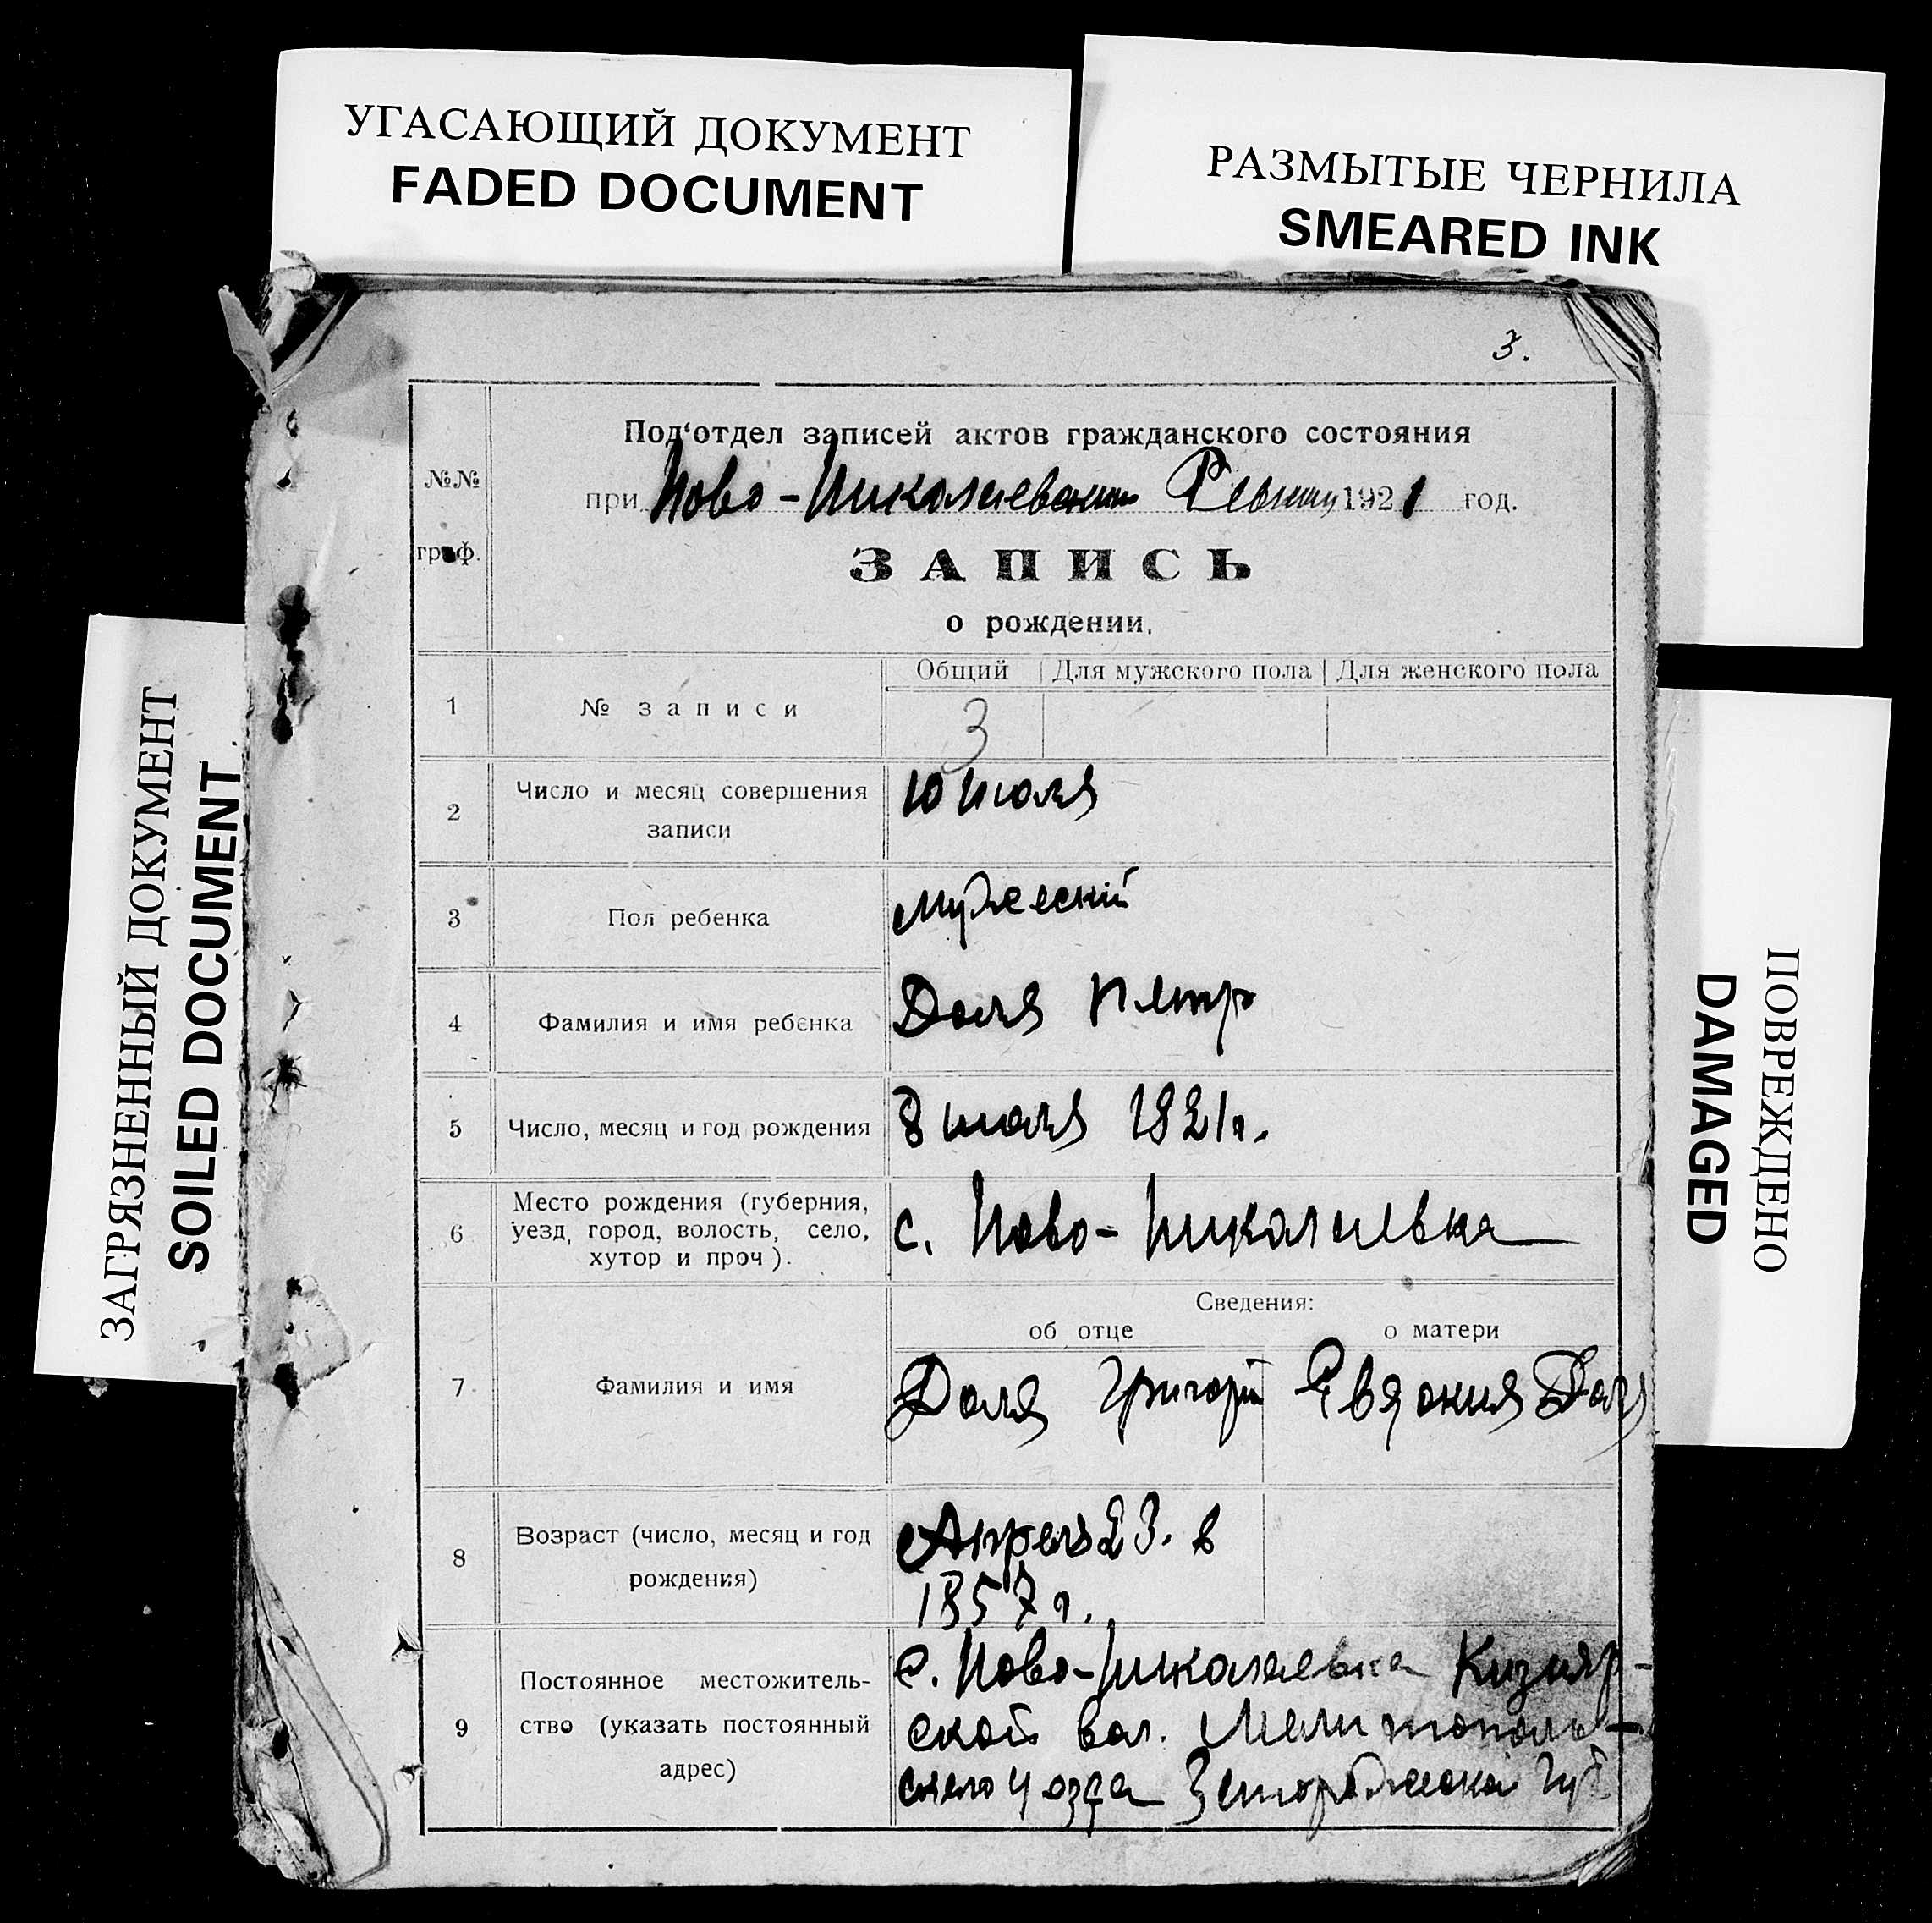 УГАСАЮЩИЙ ДОКУМЕНТ
FADED DOCUMENT
РАЗМЫТЫЕ ЧЕРНИЛА
SMEARED INK
ЗАГРЯЗНЕННЫЙ ДОКУМЕНТ
SOILED DOCUMENT
ПОВРЕЖДЕНО
DAMAGED
3.
№№ граф.
Под‘отдел записей актов гражданского состояния
при Ново-Николаевском 1921 год.
ЗАПИСЬ
о рождении.
Общий Для мужского пола Для женского пола
1 № записи 3
2 Число и месяц совершения записи 10 июля
3 Пол ребенка мужеский
4 Фамилия и имя ребенка Доля Петр
5 Число, месяц и год рождения 8 июля 1921 г.
6 Место рождения (губерния, уезд, город, волость, село, хутор и проч). с. Ново-Николаевка
Сведения:
об отце о матери
7 Фамилия и имя Доля Григорий Евдокия Доля
8 Возраст (число, месяц и год рождения) Апрель 23. в
1857 г.
9 Постоянное местожитель-
ство (указать постоянный
адрес)
с. Ново-Николаевка Кизияр-
ской вол. Мелитополь-
ского уезда Запорожской губ.